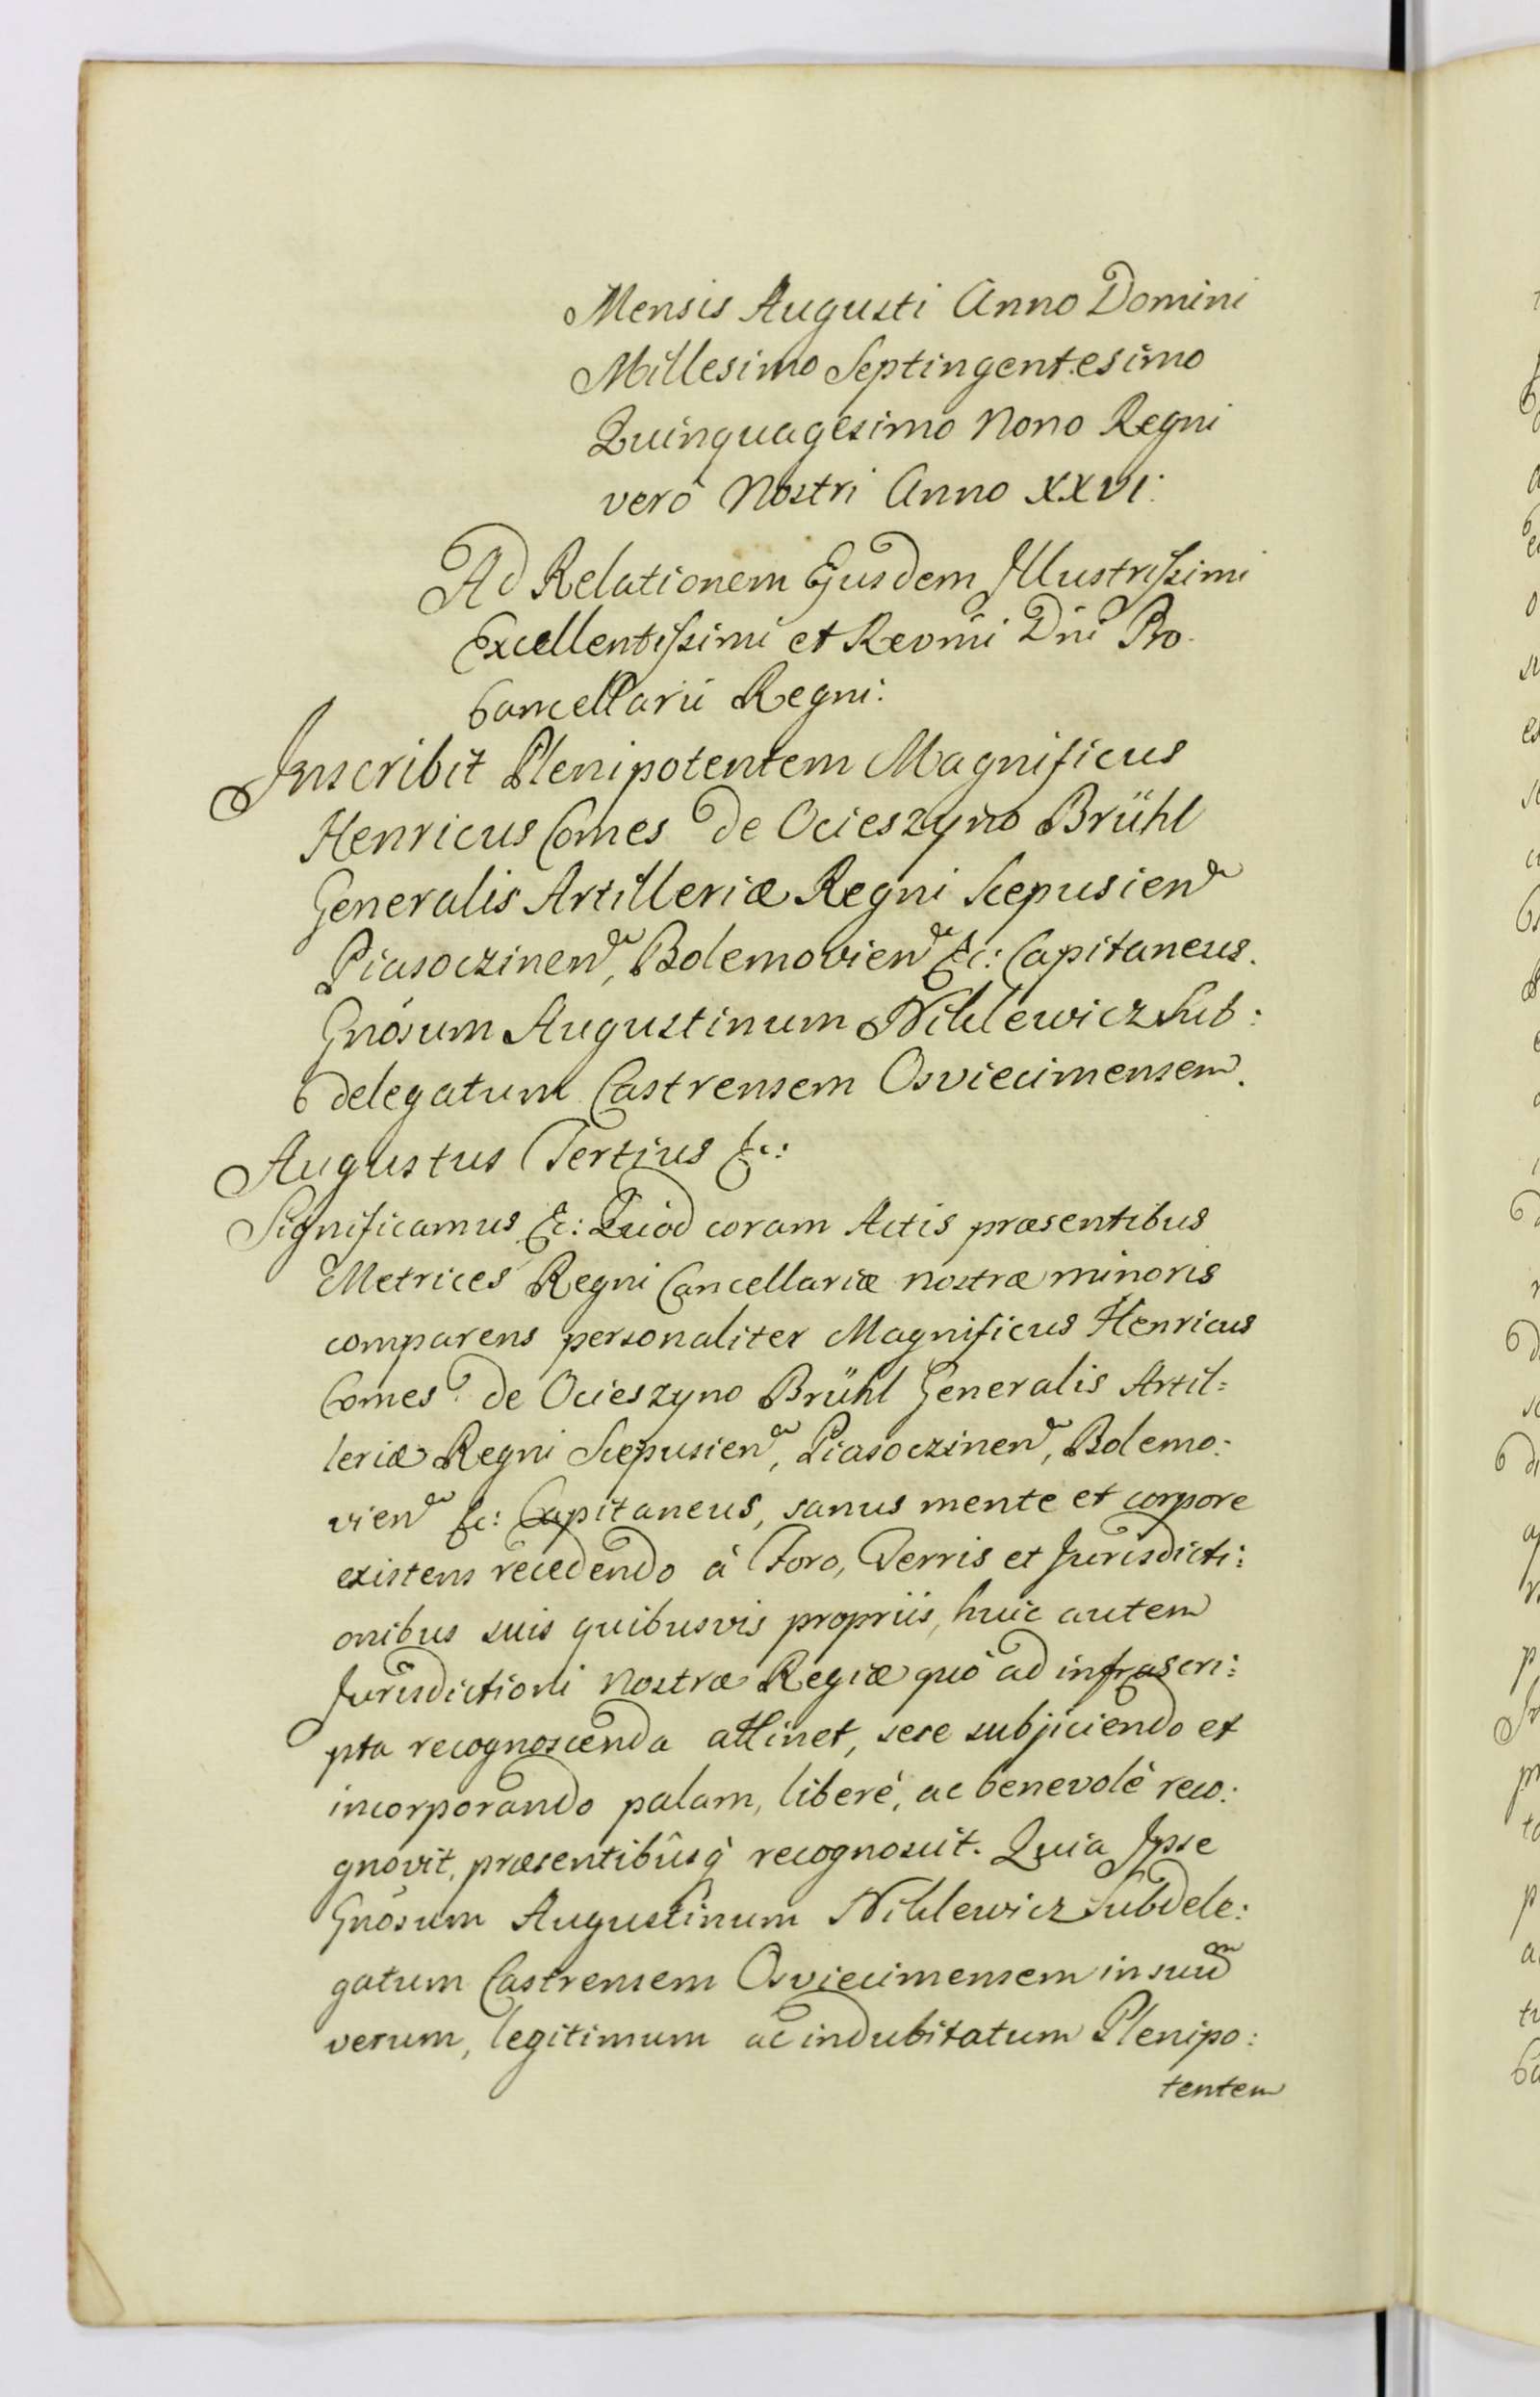 Mensis Augusti Anno Domini
Millesimo Septingentesimo
Quinquagesimo Nono Regni
verò Nostri Anno XXVI.
Ad Relationem Ejusdem Illustrissimi
Excellentissimi et Revmi Dni Pro
Cancellarii Regni:
Inscribit Plenipotentem Magnificus
Henricus Comes de Ocieszyno Brühl
Generalis Artilleriæ Regni Scepusien
Piasoczinen, Bolemovien &c: Capitaneus.
Gnosum Augustinum Sub:
delegatum Castrensem Osviecimensem.
Augustus Tertius &c:
Significamus &c: Quod coram Actis præsentibus
Metrices Regni Cancellariæ nostræ minoris
comparens personaliter Magnificus Henricus
Comes de Ocieszyno Brühl Generalis Artil=
leriæ Regni Scepusien, Piasoczinen, Bolemo:
vien &c: Capitaneus, sanus mente et corpore
existens recedendo à Foro, Terris et Jurisdicti:
onibus suis quibusvis propriis, huic autem
Jurisdictioni Nostræ Regiæ quò ad infrascri:
pta recognoscenda attinet, sese subjiciendo et
incorporando palam, liberè, ac benevolè reco:
gnovit, præsentibûsq recognoscit. Quia Ipse
Gnosum Augustinum Subdele:
gatum Castrensem Osviecimensem in suum
verum, legitimum ac indubitatum Plenipo:
tentem